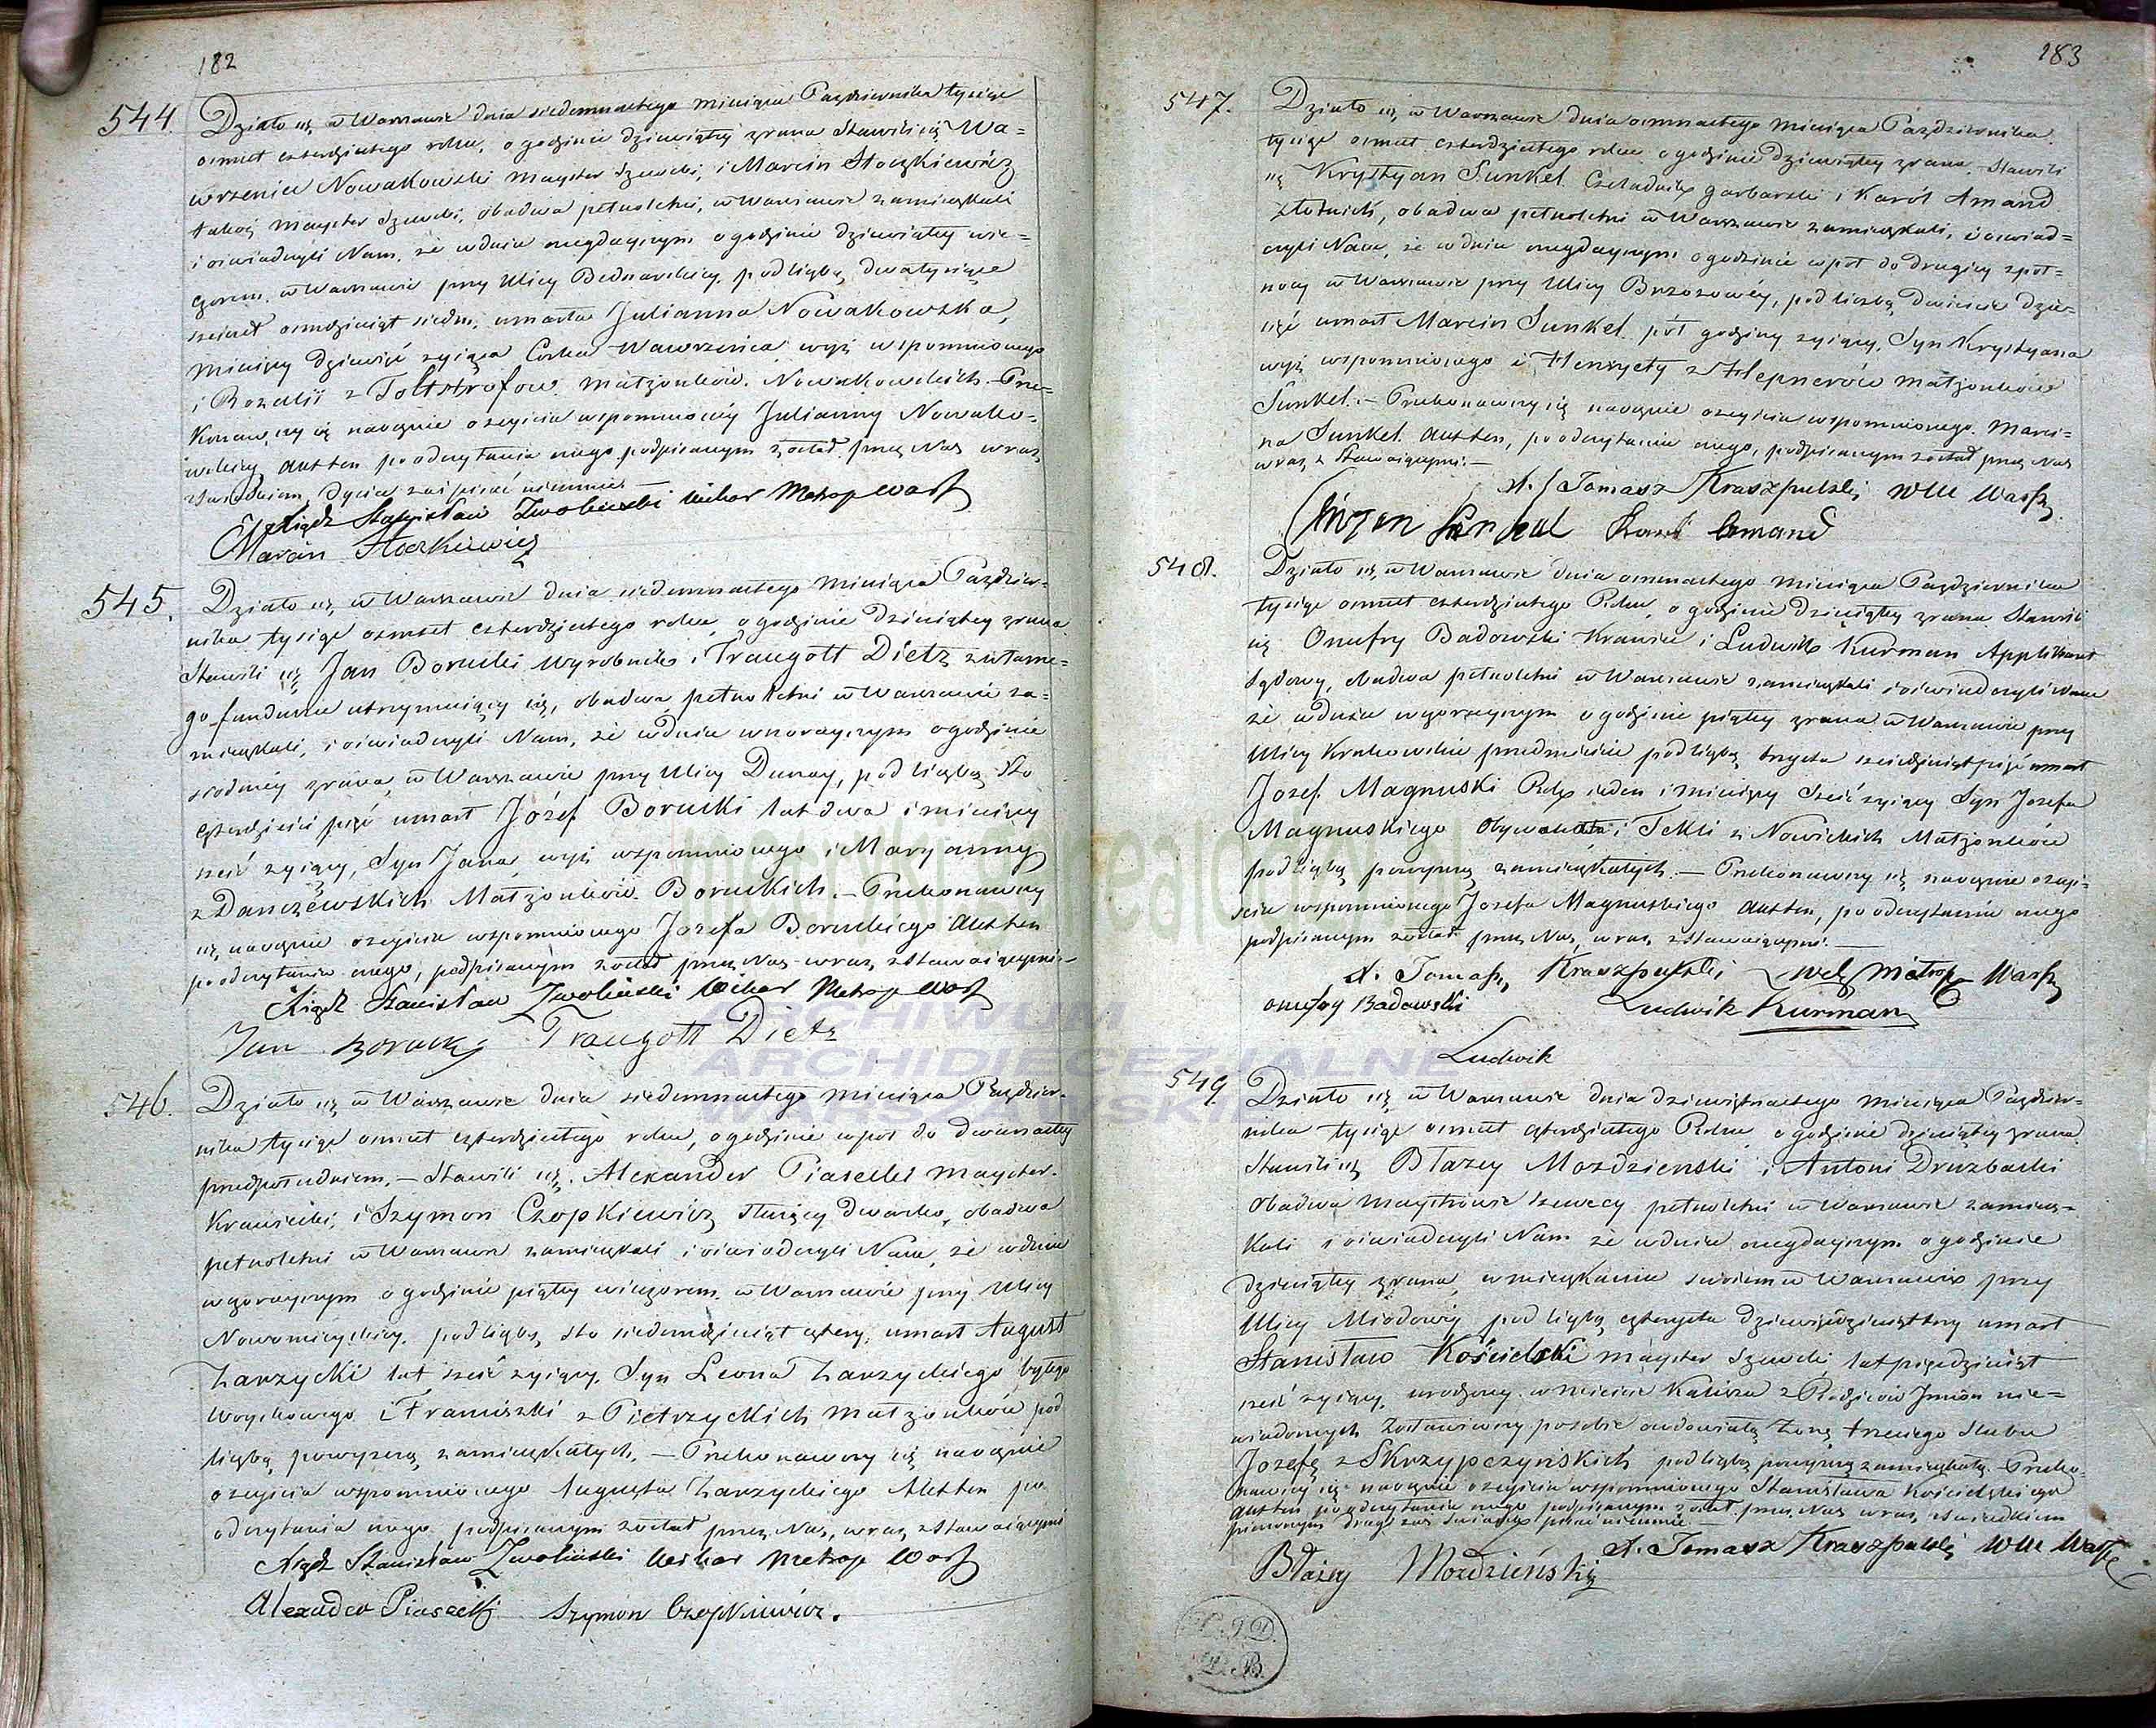 182
544. Działo się w Warszawie dnia siedemnastego miesiąca Października tysiąc
osmset czterdziestego roku, o godzinie dziewiątey zrana Stawili się Wa=
wrzeniec Nowakowski Mayster Szewcki, i Marcin Stoczkiewicz
takoż Mayster Szewcki, obadwa pełnoletni, w Warszawie zamieszkali
i oświadczyli Nam, że w dniu onegdayszym o godzinie dziewiątey wie=
czorem, w Warszawie przy Ulicy Bednarskiey, pod liczbą dwatysiące
sześćset osmdziesiąt siedm, umarła Julianna Nowakowska,
miesięcy dziewięć żyiąca Corka Wawrzeńca wyż wspomnionego
i Rozalii z Toltstrofow małżonków Nowakowskich.- Prze=
konawszy się naocznie o zeyściu wspomnioney Julianny Nowako=
wskiey Akt ten po odczytaniu onego podpisanym został przez Nas wraz
z Świadkiem, Oyciec zaś pisać nieumie -
Xiądz Stanisław Zwoliński Wikar Metrop Warsz
Marcin Stoczkiewicz
545. Działo się w Warszawie dnia siedemnastego Miesiąca Paździer=
nika tysiąc osmset czterdziestego roku o godzinie dziesiątey zrana
Stawili się Jan Borucki Wyrobnik i Traugott Dietz z własne=
go funduszu utrzymuiący się, obadwa pełnoletni w Warszawie za=
mieszkali, i oświadczyli Nam, że w dniu wczorayszym o godzinie
siodmey zrana, w Warszawie przy Ulicy Dunay, pod liczbą Sto
czterdzieści pięć umarł Józef Borucki lat dwa i miesięcy
sześć żyiący, Syn Jana wyż wspomnionego i Maryanny
z Danczewskich Małżonków Boruckich.- Przekonawszy
się naocznie o zeyściu wspomnionego Jozefa Boruckiego Akt ten
po odczytaniu onego, podpisanym został przez Nas wraz z Stawaiącymi.-
Xiądz Stanisław Zwoliński Wikar Metrop Warsz
Jan Borucki Traugott Dietz
546. Działo się w Warszawie dnia siedemnastego miesiąca Paździer=
nika tysiąc osmset czterdziestego roku, o godzinie wpoł do dwunastey
przedpołudniem.- Stawili się Alexander Piasecki Mayster
Krawiecki, i Szymon Czopkiewicz służący dworski, obadwa
pełnoletni w Warszawie zamieszkali i oświadczyli Nam, że w dniu
wczorayszym o godzinie piątey wieczorem w Warszawie przy Ulicy
Nowomieyskiey pod liczbą sto siedmdziesiąt cztery, umarł August
Zarzycki lat sześć żyiący, Syn Leona Zarzyckiego byłego
Woyskowego i Franciszki z Pietrzyckich małżonków pod
liczbą powyższą zamieszkałych.- Przekonawszy się naocznie
o zeyściu wspomnionego Augusta Zarzyckiego Akt ten po
odczytaniu onego podpisanym został przez Nas, wraz z Stawaiącymi
Xiądz Stanisław Zwoliński Wikar Metrop Warsz
Alexander Piasecki Szymon Czopkiewicz.
183
547. Działo się w Warszawie dnia osmnastego Miesiąca Października
tysiąc osmset czterdziestego roku o godzinie dziewiątey zrana, Stawili
się Krystyan Sunkel Czeladnik garbarski i Karól Amand
złotnick, obadwa pełnoletni w Warszawie zamieszkali, i oświad=
czyli Nam, że w dniu onegdayszym o godzinie wpoł do drugiey zpoł=
nocy w Warszawie przy Ulicy Brzozowéy, pod liczbą dwieście dzie=
sięć umarł Marcin Sunkel pół godziny żyiący, Syn Krystyana
wyż wspomnionego i Henryety z Heppnerów małżonków
Sunkel.- Przekonawszy się naocznie o zeyściu wspomnionego Marci=
na Sunkel Akt ten, po odczytaniu onego, podpisanym został przez Nas
wraz z Stawaiącymi.-
X. Tomasz Kraszpulski WM Warsz
Karol Amand
548. Działo się w Warszawie dnia osmnastego miesiąca Października
tysiąc osmset czterdziestego Roku, o godzinie dziesiątey zrana Stawili
się Onufry Badowski Krawiec i Ludwik Kurman Applikant
Sądowy, obadwa pełnoletni w Warszawie zamieszkali i oświadczyli Nam
że w dniu wczorayszym o godzinie piątey zrana w Warszawie przy
Ulicy Krakowskie przedmieście pod liczbą trzysta sześćdziesiąt pięć umarł
Jozef Magnuski Rok ieden i miesięcy sześć żyiący Syn Jozefa
Magnuskiego Obywatela i Tekli z Nowickich Małżonków
pod liczbą powyższą zamieszkałych.- Przekonawszy się naocznie o zey=
ściu wspomnionego Jozefa Magnuskiego Akt ten, po odczytaniu onego
podpisanym został przez Nas, wraz z Stawaiącymi.-
X. Tomasz Kraszpulski Metrop Warsz
Onufry Badowski Ludwik Kurman
Ludwik
549 Działo się w Warszawie dnia dziewiętnastego Miesiąca Paździer=
nika tysiąc osmset czterdziestego Roku o godzinie dziesiątey zrana
Stawili się Błażey Mozdzieński i Antoni Druzbacki
Obadwa Maystrowie Szewccy pełnoletni w Warszawie zamiesz=
kali i oświadczyli Nam że w dniu onegdayszym o godzinie
dziesiątey zrana, w mieszkaniu swoiem w Warszawie przy
Ulicy Miodowéy pod liczbą czterysta dziewięćdziesiąt trzy umarł
Stanisław Kościelski Mayster Szewcki lat pięćdziesiąt
sześć żyiący, urodzony w mieście Kaliszu z Rodziców Imion nie=
wiadomych Zostawiwszy po sobie owdowiałą Żonę trzeciego Slubu
Jozefę z Skrzypczyńskich pod liczbą powyższą zamieszkałą.- Przeko=
nawszy się naocznie o zeyściu wspomnionego Stanisława Kościelskiego
Akt ten po odczytaniu onego podpisanym został przez Nas wraz z Świadkiem
pierwszym drugi zaś Świadek pisać nieumie.-
X. Tomasz Kraszpulski WM Warsz
Błażey Mozdzieński
ARCHIWUM
ARCHIDIECEZJALNE
WARSZAWSKIE